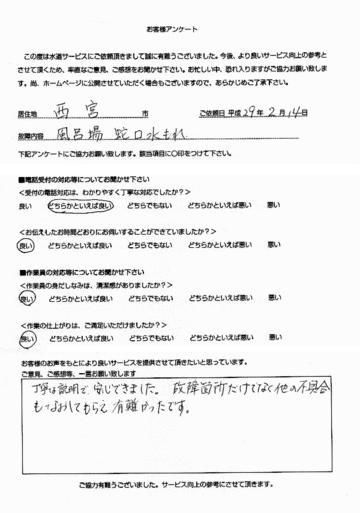 お客様アンケート
この度は水道サービスにご依頼頂きまして誠に有難うございました。今後、より良いサービス向上の参考と
させて頂くため、率直なご意見、ご感想をお聞かせ下さい。お忙しい中、恐れ入りますがご協力お願い致しま
す。尚、ホームページに公開させていただく場合もございますので、あらかじめご了承下さい。
居住地 西宮 市 ご依頼日 平成 29年 2月 14日
故障内容 風呂場 蛇口水もれ
下記アンケートにご協力お願い致します。該当項目に〇印をつけて下さい。
■電話受付の対応等についてお聞かせ下さい
<受付の電話対応は、わかりやすく丁寧な対応でしたか?>
良い どちらかといえば良い どちらでもない どちらかといえば悪い 悪い
<お伝えしたお時間どおりにお伺いすることができていましたか?>
良い どちらかといえば良い どちらでもない どちらかといえば悪い 悪い
■作業員の対応等についてお聞かせ下さい
<作業員の身だしなみは、清潔感がありましたか?>
良い どちらかといえば良い どちらでもない どちらかといえば悪い 悪い
<作業の仕上がりは、ご満足いただけましたか?>
良い どちらかといえば良い どちらでもない どちらかといえば悪い 悪い
お客様のお声をもとにより良いサービスを提供させて頂きたいと思っています。
ご意見、ご感想等、一言お願い致します
丁寧な説明で、安心できました。故障箇所だけでなく他の不具合
もなおしてもらえ有難かったです。
ご協力有難うございました。サービス向上の参考にさせて頂きます。